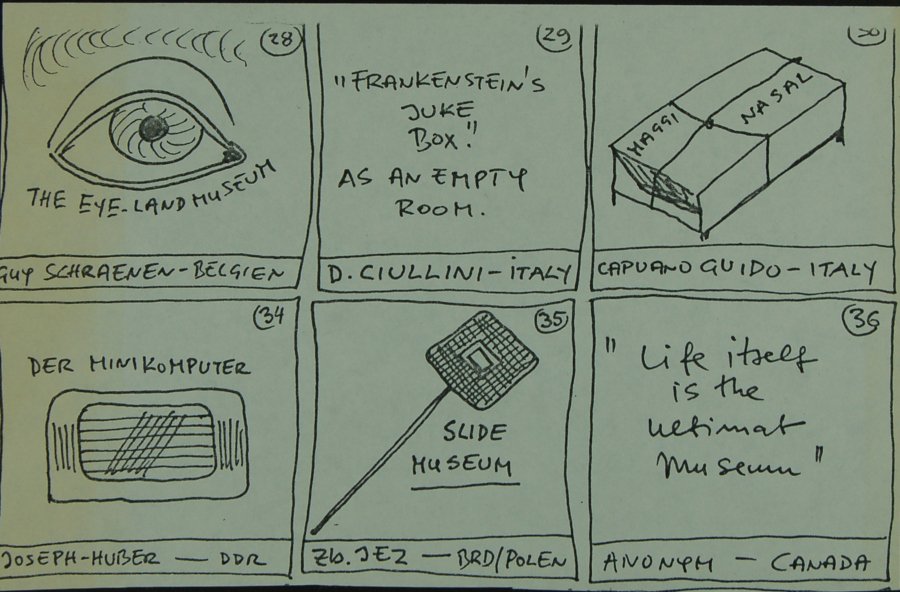 28
THE EYE-LAND MUSEUM
GUY SCHRAENEN-BELGIEN
29
"FRANKENSTEIN'S
JUKE
BOX."
AS AN EMPTY
ROOM.
D. CIULLINI-ITALY
30
MAGGI
NASAL
CAPUANO GUIDO-ITALY
34
DER MINIKOMPUTER
JOSEPH-HUBER — DDR
35
SLIDE
MUSEUM
Zb. JEZ — BRD/POLEN
36
"Life itself
is the
ultimat
Museum"
ANONYM — CANADA